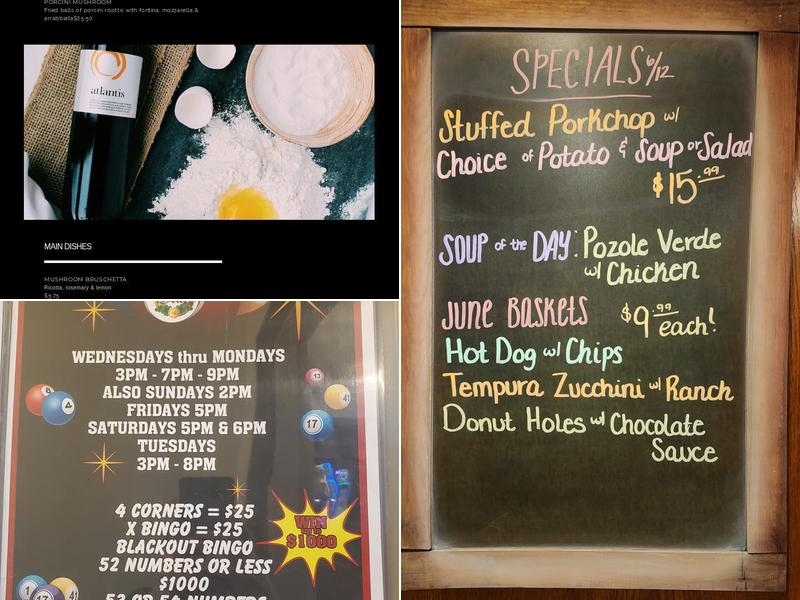 PORCINI MUSHROOM
Fried balls of porcini risotto with fontina, mozzarella &
arrabbiata$15.50
atlantis
MAIN DISHES
MUSHROOM BRUSCHETTA
Ricotta, rosemary & lemon
$5.75
WEDNESDAYS thru MONDAYS
3PM - 7PM - 9PM
ALSO SUNDAYS 2PM
FRIDAYS 5PM
SATURDAYS 5PM & 6PM
TUESDAYS
3PM - 8PM
4 CORNERS = $25
X BINGO = $25
BLACKOUT BINGO
52 NUMBERS OR LESS
$1000
53 OR 54 NUMBERS
WIN
up to
$1000
4
13
17
SPECIALS 6/12
Stuffed Porkchop w/
Choice of Potato & Soup or Salad
$15.99
SOUP of the DAY: Pozole Verde
w/ Chicken
JUNE BASKETS $9.99 each!
Hot Dog w/ Chips
Tempura Zucchini w/ Ranch
Donut Holes w/ Chocolate
Sauce